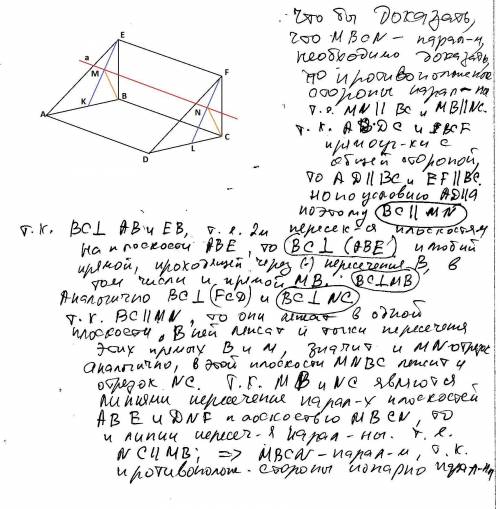 E
a
M
F
K
B
N
A
C
D
L
Что бы доказать,
что MBCN - парал-м,
необходимо доказать,
противоположные
стороны парал-ны
т.е. MN || BC и MB || NC.
т.к. ABDC и EBCF
прямоуг-ки с
общей стороной,
то AD || BC и EF || BC.
но по условию AD || a
поэтому BC || MN
т.к. BC ⊥ AB и EB, т.е. 2м пересек-ся
на плоскости ABE, то BC ⊥ (ABE) и любой
прямой, проходящей через (·) пересечения B, в
том числе и прямой MB. BC ⊥ MB
Аналогично BC ⊥ (FCD) и BC ⊥ NC
т.к. BC || MN, то они лежат в одной
плоскости, в ней лежат и точки пересечения
этих прямых B и M, значит и MN-отрезок
аналогично, в этой плоскости MNBC лежит и
отрезок NC. Т.к. MB и NC являются
линиями пересечение парал-х плоскостей
ABE и DNF плоскостью MBCN, то
и линии пересеч-я парал-ны. т.е.
NC || MB; => MBCN - парал-м, т.к.
противополож. стороны попарно парал-ны